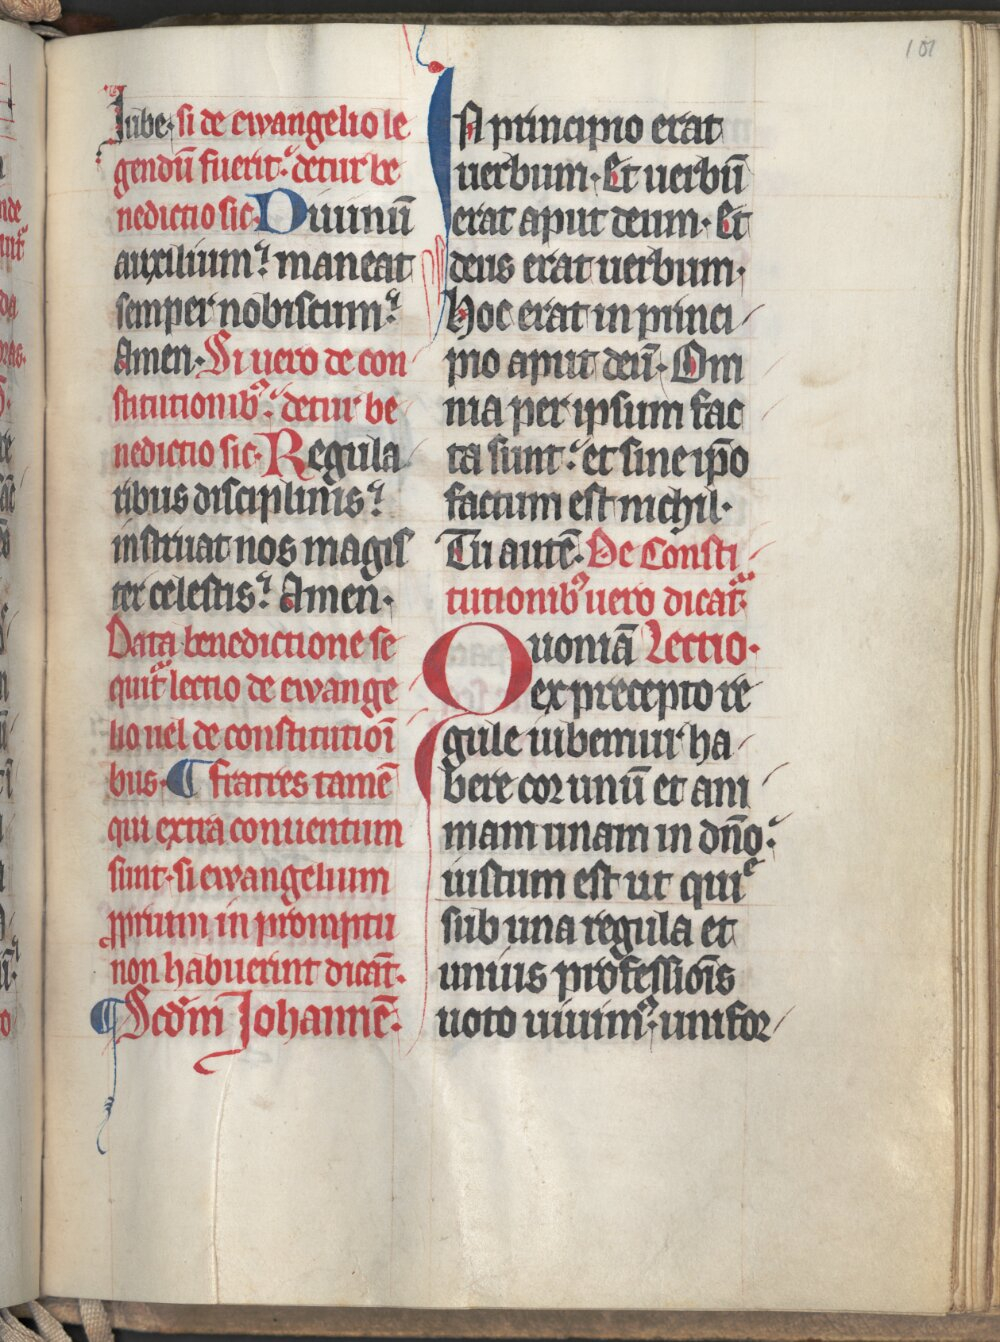 101
Iube· si de ewangelio le
gendū fuerit· detur be
nedictio sic· Diuinū
auxilium maneat
semper nobiscum
Amen· Si uero de con
stitutionib⁹ detur be
nedictio sic· Regula
ribus disciplinis
instruat nos magis
ter celestis Amen·
Data benedictione se
quit᷑ lectio de ewange
lio uel de constitutioī
bus· ¶ fratres tamē
qui extra conuentum
sunt· si ewangelium
ꝓprium in promptu
non habuerint dicāt·
¶ Scd̄m Johannē·
IN principio erat
uerbum· Et uerbū
erat aput deum· Et
deus erat uerbum·
Hoc erat in princi
pio aput deū· Om
nia per ipsum fac
ta sunt· et sine ip̄o
factum est nichil·
Tu autē· De Consti
tutionib⁹ uero dicat᷑
Quoniā Lectio·
ex precepto re
gule iubemur ha
bere cor unū et ani
mam unam in dn̄o·
iustum est ut qui
sub una regula et
unius professiōis
uoto uiuim⁹· unifor